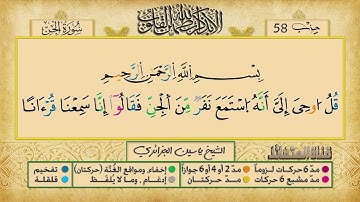 سورة الجن
ألا بذكر الله تطمئن القلوب
حزب 58
بِسْمِ اللَّهِ الرَّحْمَٰنِ الرَّحِيمِ
قُلُ اوحِيَ إِلَيَّ أَنَّهُ اسْتَمَعَ نَفَرٌ مِّنَ الْجِنِّ فَقَالُوا إِنَّا سَمِعْنَا قُرْءَانًا
الشيخ ياسين الجزائري
مدّ 6 حركات لزوماً مدّ 2 أو 4 أو 6 جوازاً إخفاء، ومواقع الغُنَّة (حركتان) تفخيم
مدّ مشبع 6 حركات مدّ حركتان إدغام، وما لا يُلفَظ قلقلة